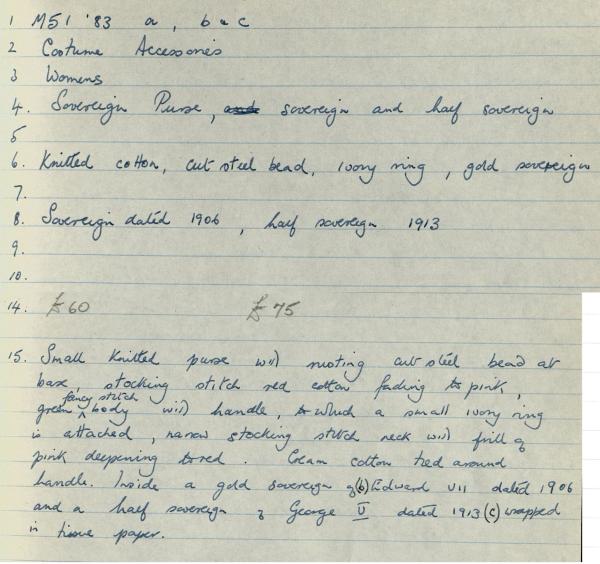 1 M51 '83 a, b & c
2 Costume Accessories
3 Womens
4. Sovereign Purse, and sovereign and half sovereign
5
6. Knitted cotton, cut steel bead, ivory ring, gold sovereign
7.
8. Sovereign dated 1906, half sovereign 1913
9.
10.
14. £60 £75
15. Small knitted purse with rusting cut steel bead at
base, stocking stitch red cotton fading to pink,
fancy stitch
green body with handle, to which a small ivory ring
is attached, narrow stocking stitch neck with frill of
pink deepening to red. Cream cotton tied around
handle. Inside a gold sovereign of (b) Edward VII dated 1906
and a half sovereign of George V dated 1913 (c) wrapped
in tissue paper.